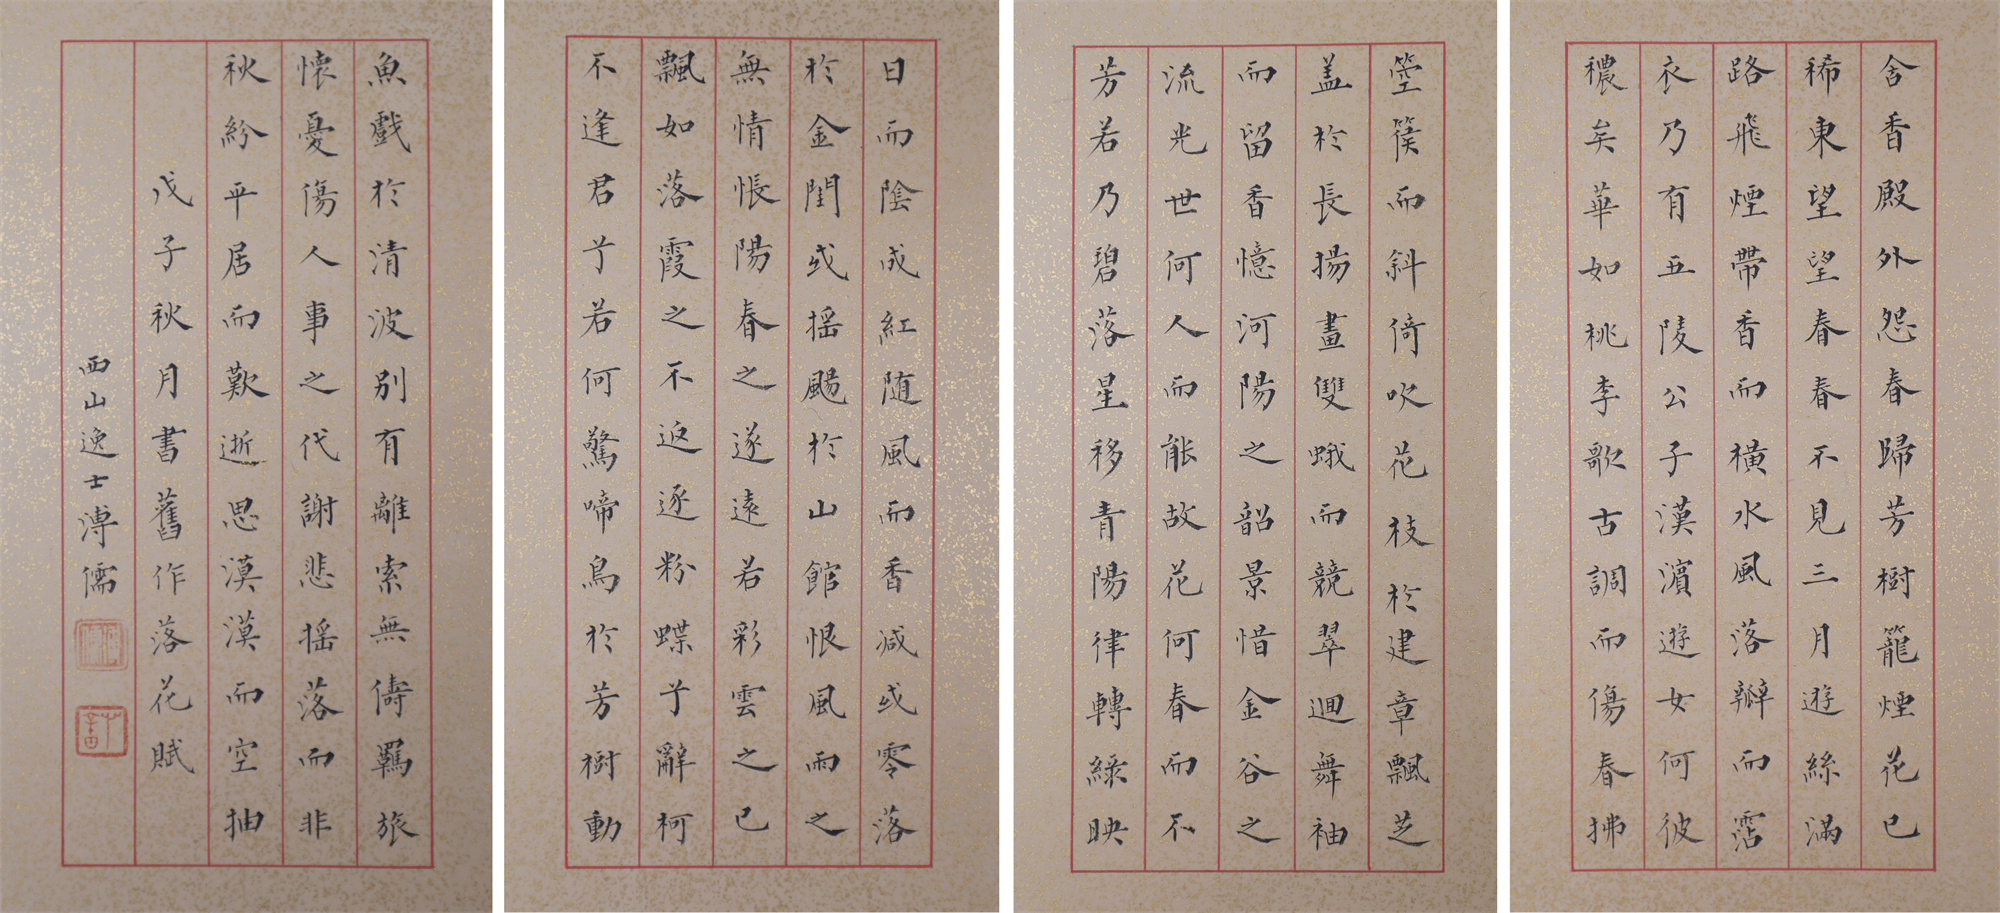 含香殿外怨春歸芳樹籠煙花已
稀東望望春春不見三月遊絲滿
路飛煙帶香而橫水風落瓣而霑
衣乃有五陵公子漢濱遊女何彼
穠矣華如桃李歌古調而傷春拂
箜篌而斜倚吹花枝於建章飄芝
蓋於長揚畫雙蛾而競翠迴舞袖
而留香憶河陽之韶景惜金谷之
流光世何人而能故花何春而不
芳若乃碧落星移青陽律轉綠映
日而陰成紅随風而香減或零落
於金閨或摇颺於山館恨風雨之
無情悵陽春之遂遠若彩雲之已
飄如落霞之不返逐粉蝶兮辭柯
不逢君兮若何驚啼鳥於芳樹動
魚戲於清波別有離索無儔羈旅
懷憂傷人事之代謝悲摇落而非
秋紛平居而歎逝思漠漠而空抽
戊子秋月書舊作落花賦
西山逸士溥儒